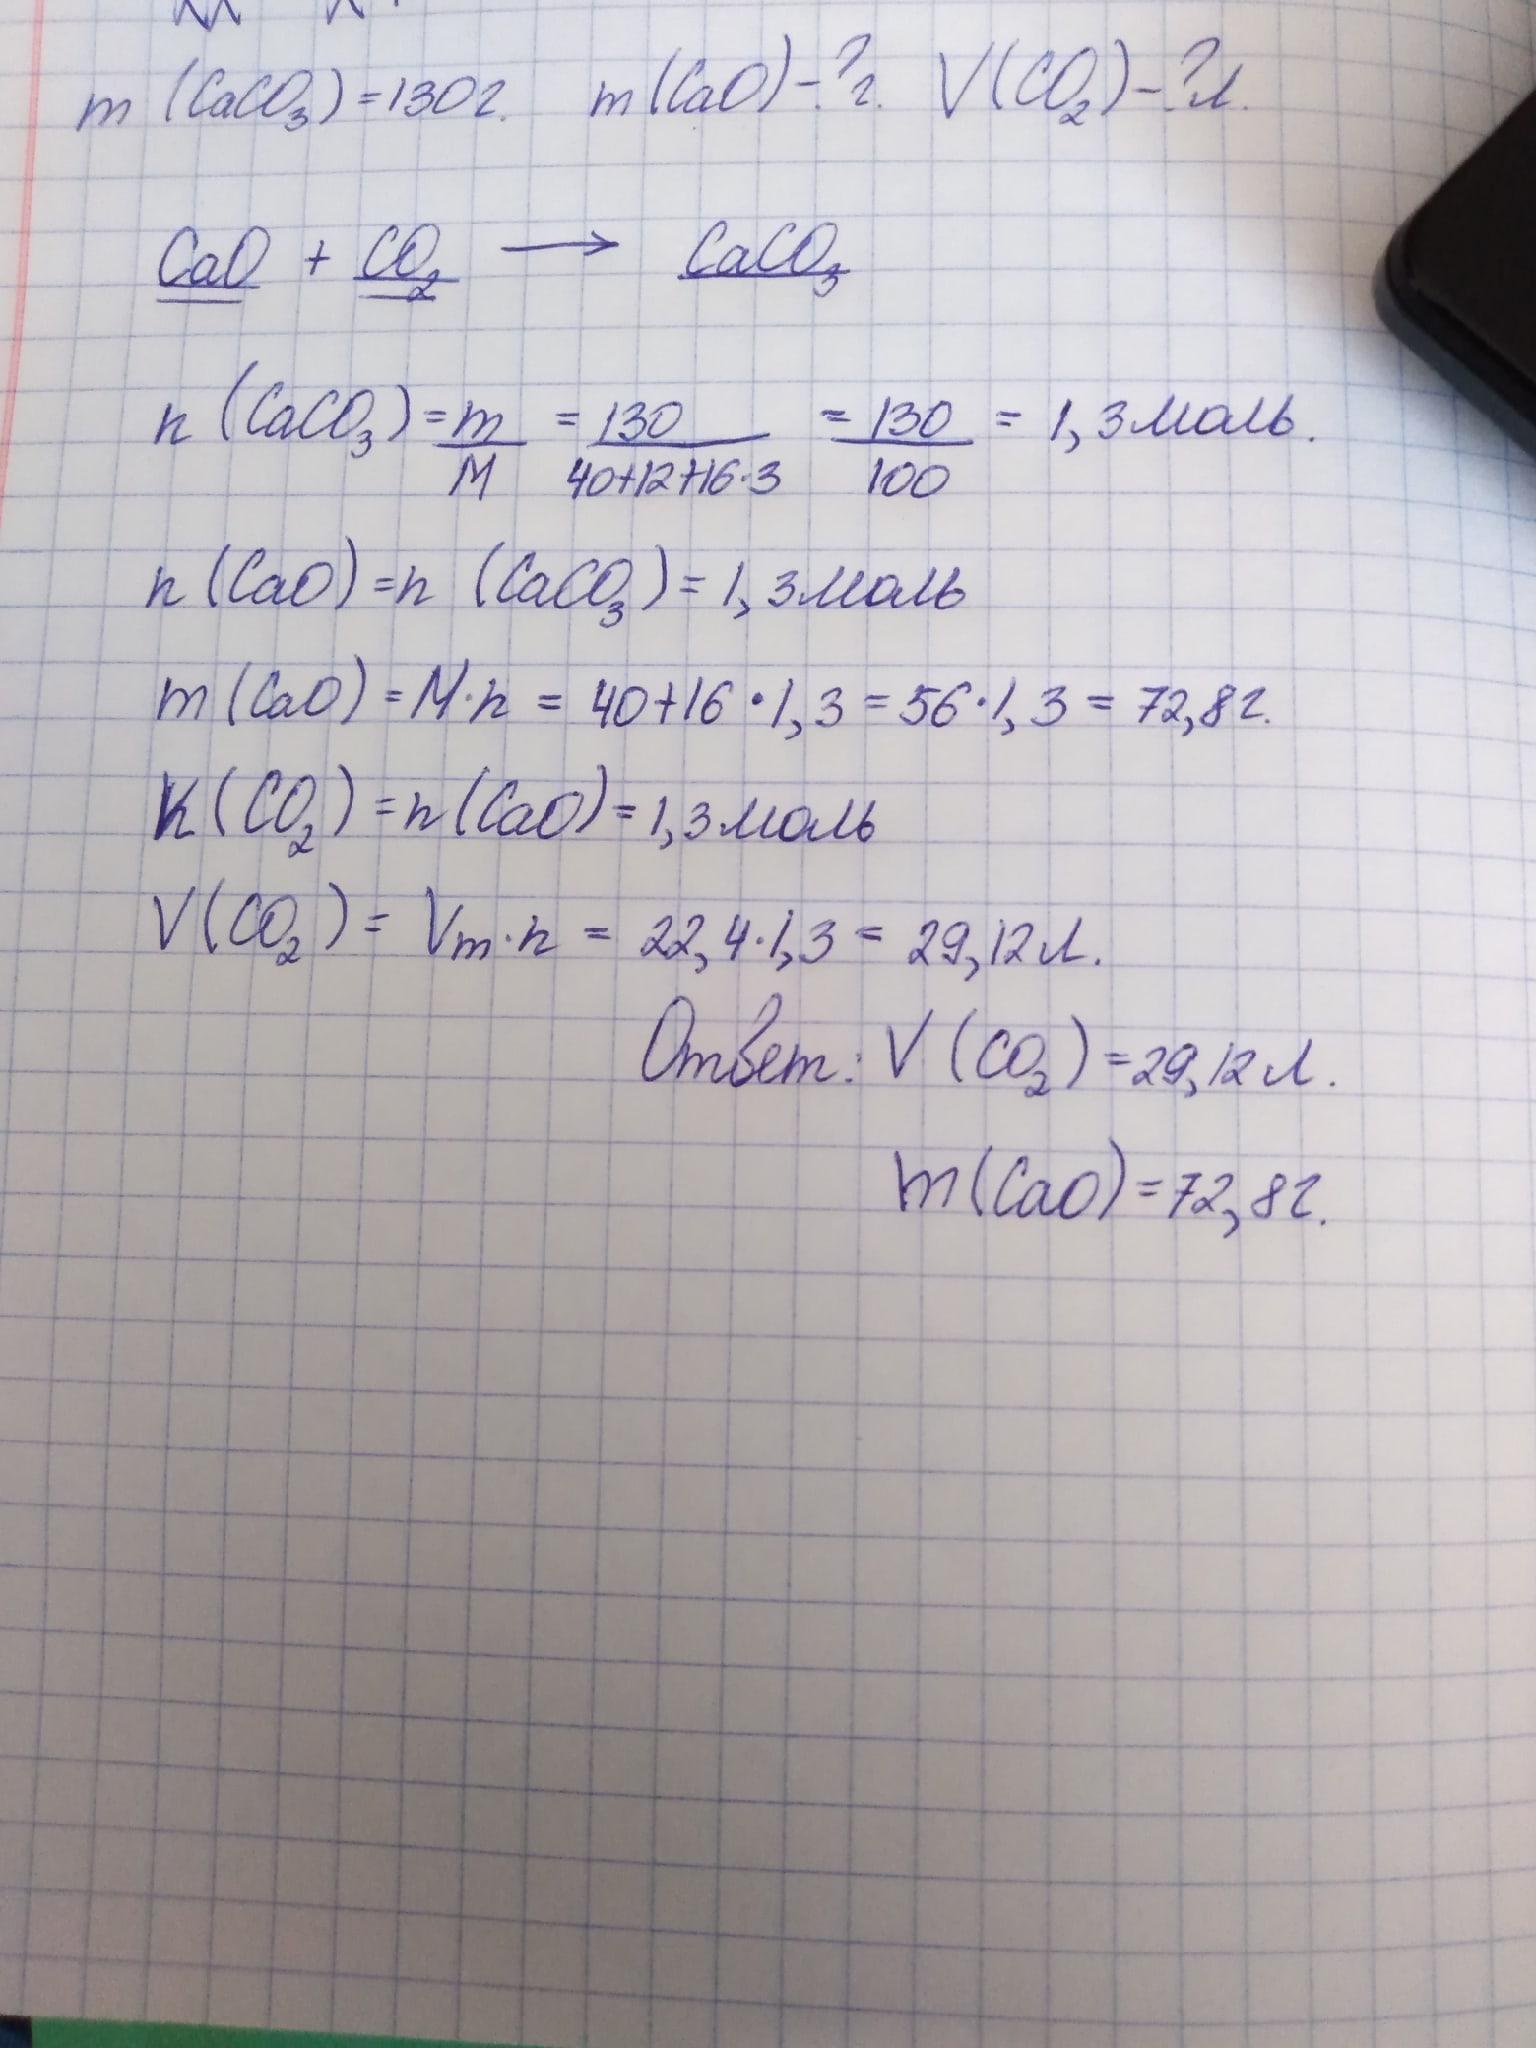 m (CaCO₃) = 130 г. m (CaO) - ? г. V (CO₂) - ? л.
CaO + CO₂ → CaCO₃
n (CaCO₃) = m/M = 130/40+12+16·3 = 130/100 = 1,3 моль.
n (CaO) = n (CaCO₃) = 1,3 моль
m (CaO) = M·n = 40+16·1,3 = 56·1,3 = 72,8 г.
n (CO₂) = n (CaO) = 1,3 моль
V (CO₂) = Vm·n = 22,4·1,3 = 29,12 л.
Ответ: V (CO₂) = 29,12 л.
m (CaO) = 72,8 г.